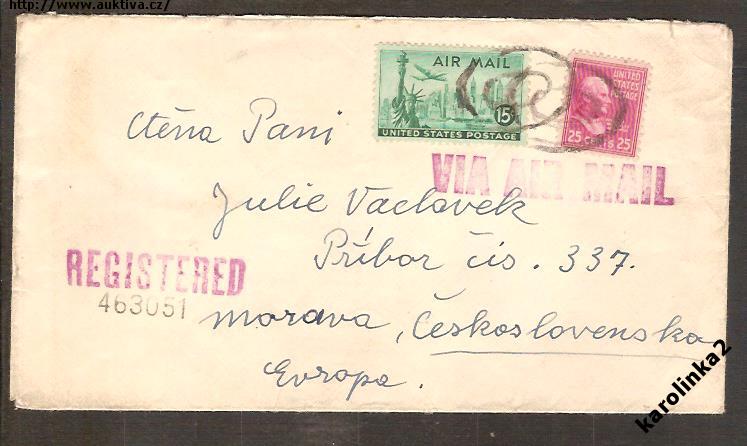 http://www.auktiva.cz/
AIR MAIL
15¢
UNITED STATES POSTAGE
UNITED STATES POSTAGE
25 CENTS 25
VIA AIR MAIL
Ctěna Pani
Julie Vaclavek
Příbor čis. 337.
REGISTERED
463051
Morava, Československa
Evropa.
karolinka2